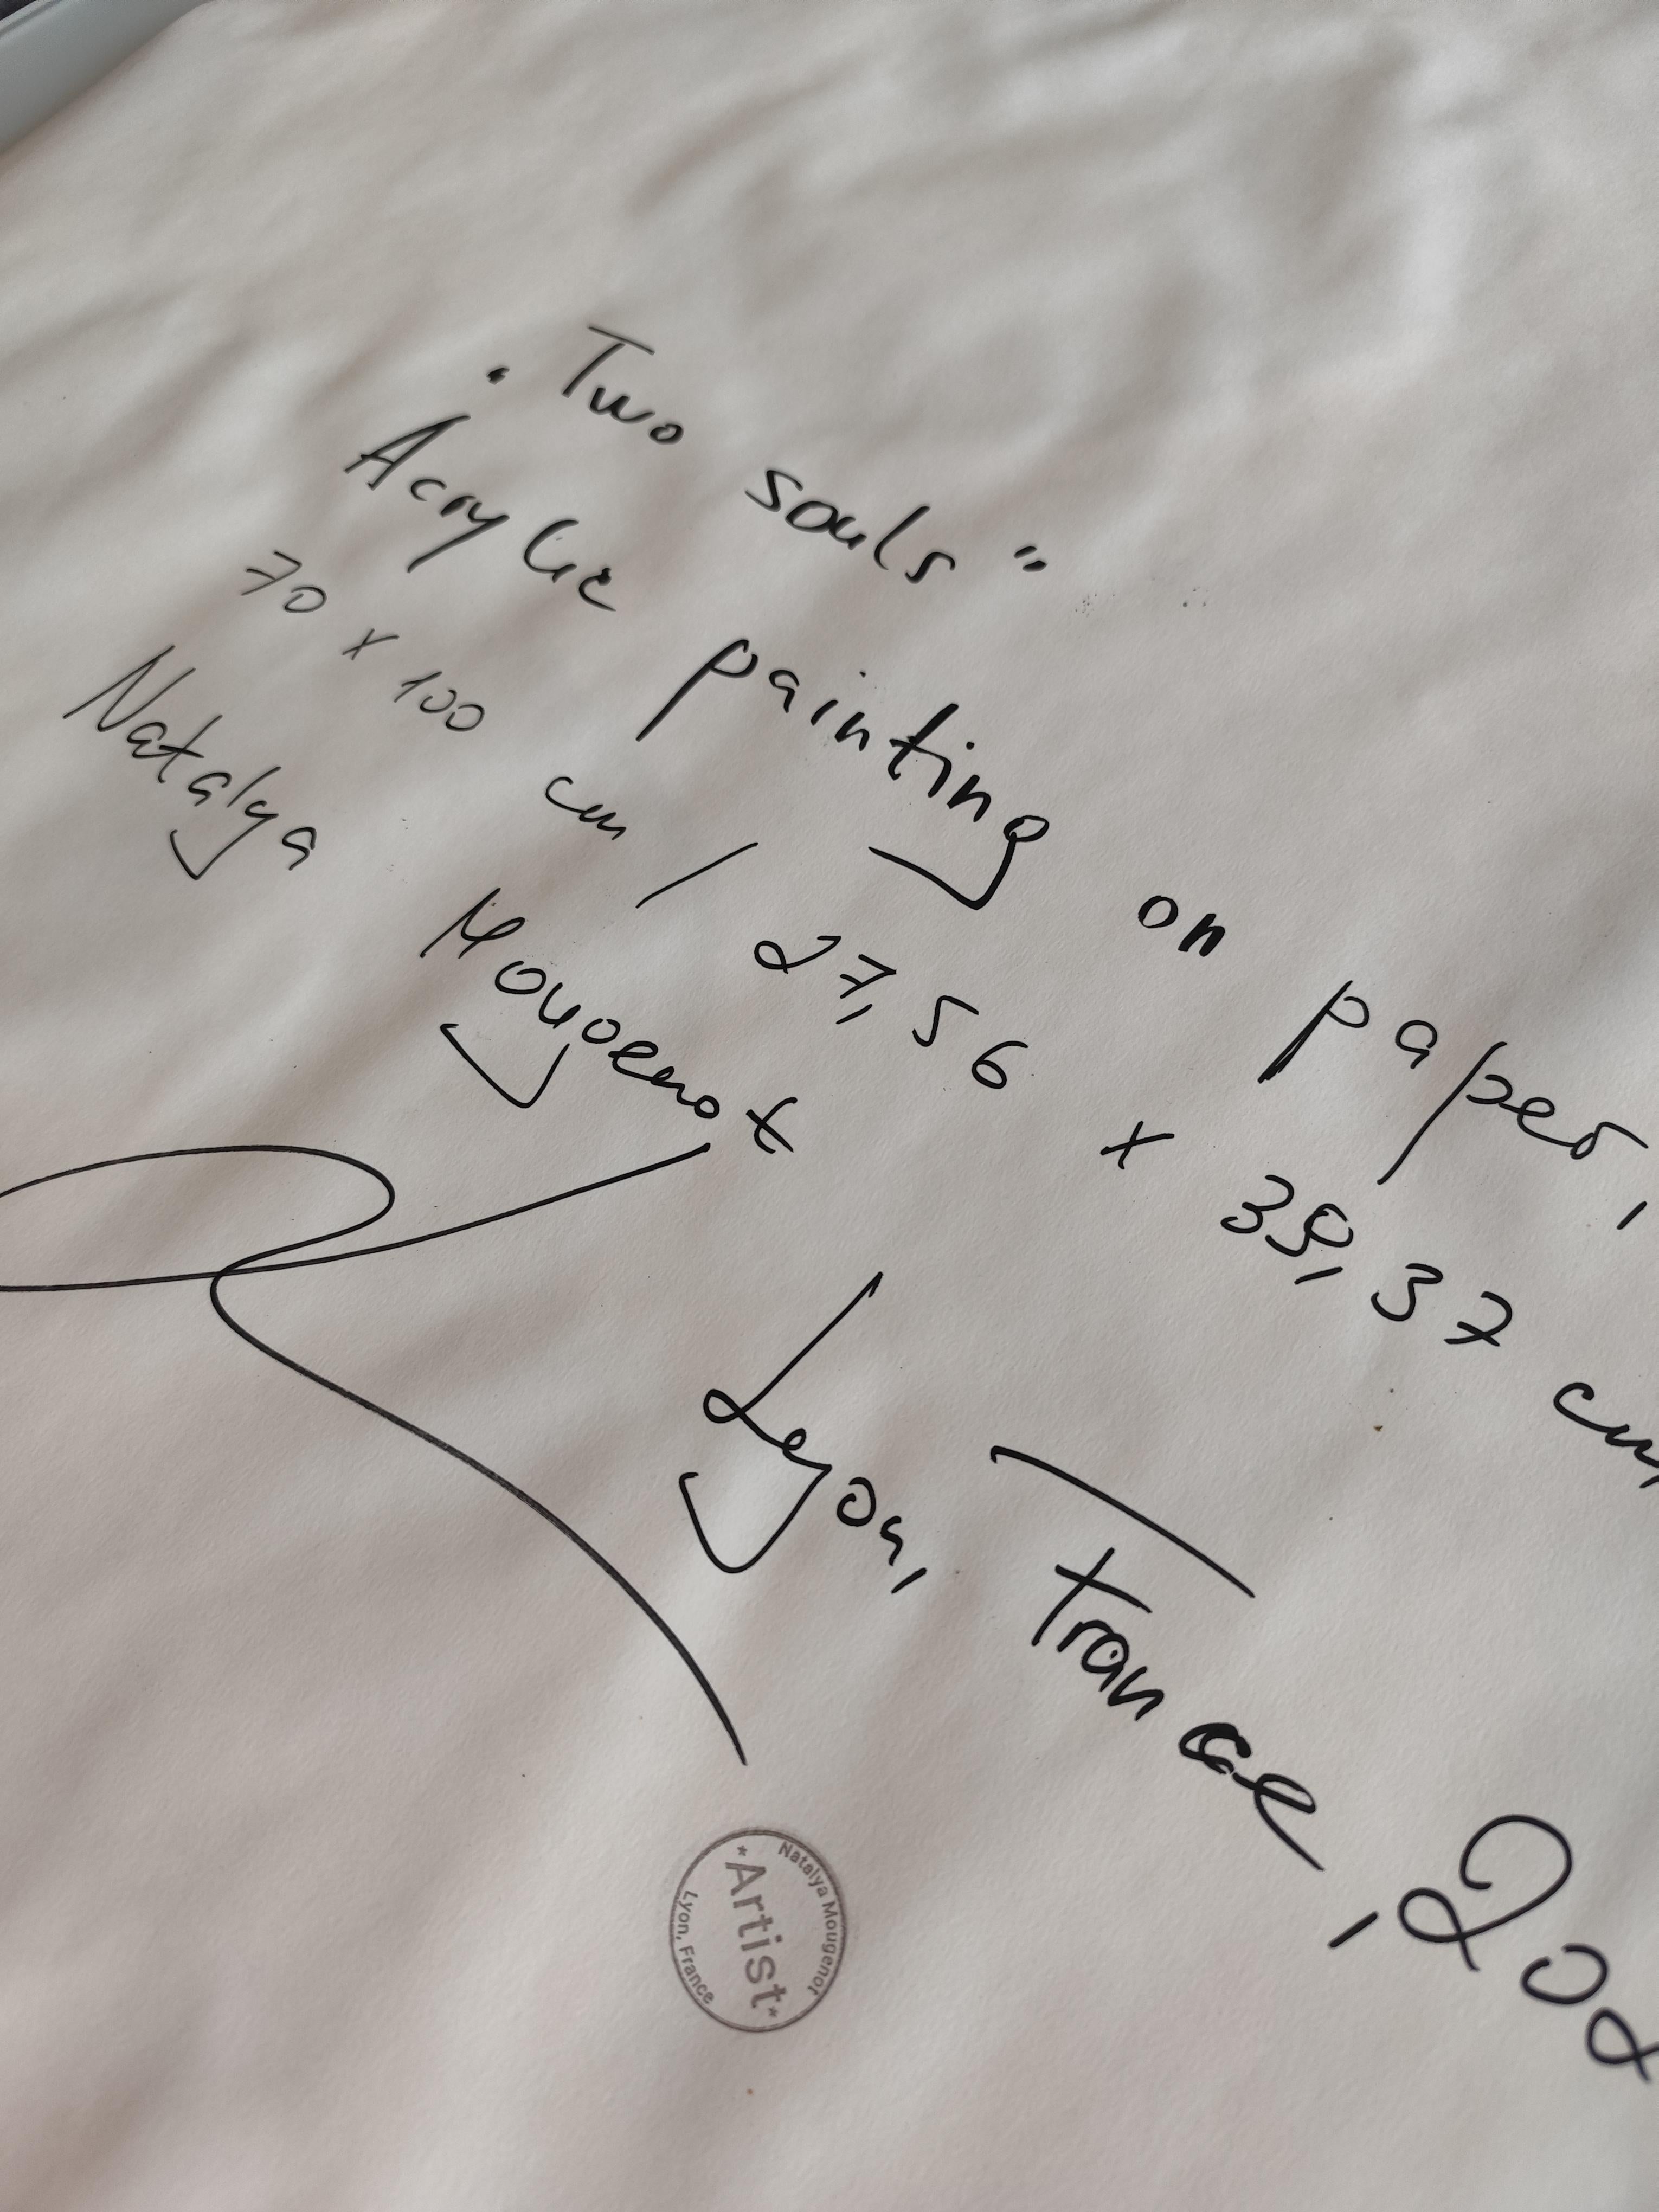 "Two souls"
Acrylic painting on paper,
70 x 100 cm / 27,56 x 39,37 cm
Natalya Mougenot
Lyon, France, 202
Natalya Mougenot
*Artist*
Lyon, France